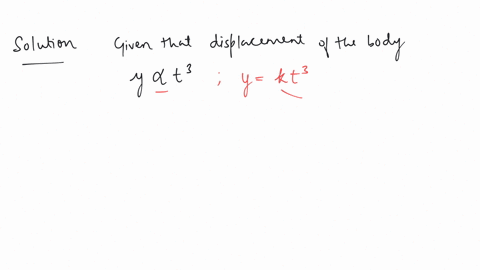 Solution Given that displacement of the body
y α t³ ; y = kt³